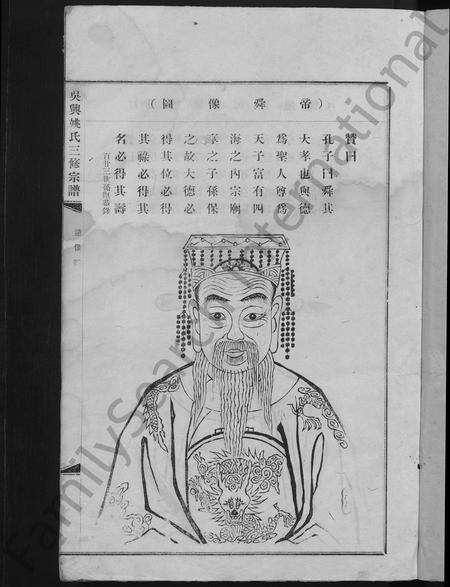 (帝舜像圖)
贊曰
孔子曰舜其
大孝也與德
爲聖人尊爲
天子富有四
海之內宗廟
享之子孫保
之故大德必
得其位必得
其祿必得其
名必得其壽
吳興姚氏三修宗譜
FamilySearch International